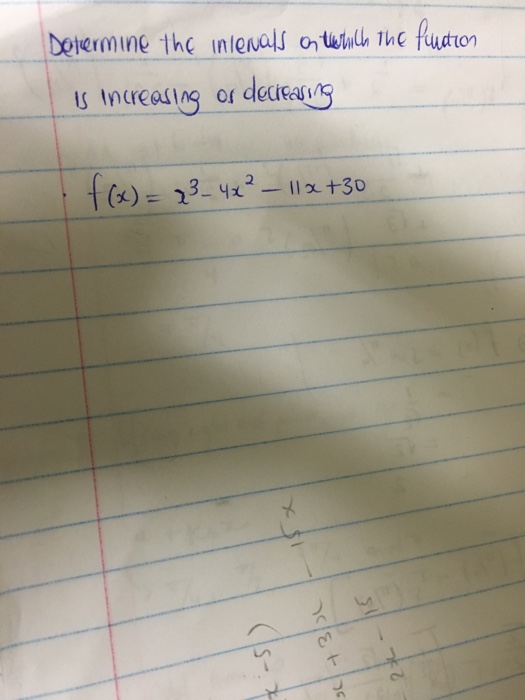 Determine the intervals on which the function
is increasing or decreasing
f(x) = x³ - 4x² - 11x + 30
x
- 15
x + 3x
2x - 15
x - 5)